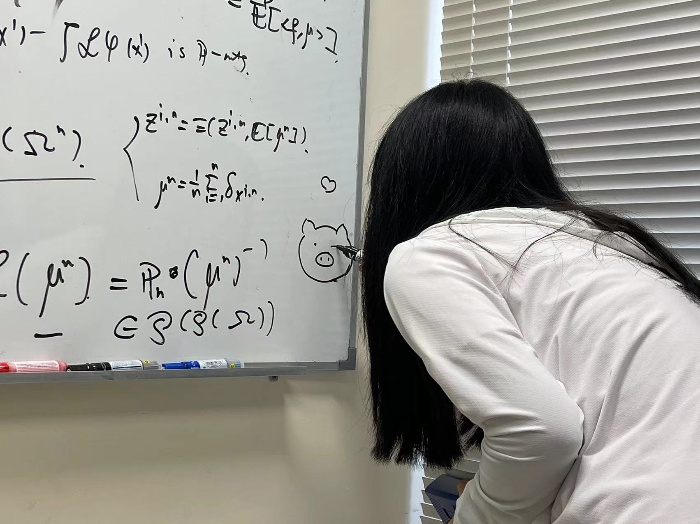 E[<φ,μ>]
x')- ∫Lφ(x') is P-mtg.
(Ωⁿ).
{ zⁱ·ⁿ = Ξ(zⁱ·ⁿ, E[μⁿ]).
μⁿ = 1/n Σⁿᵢ₌₁ δₓⁱ·ⁿ.
L(μⁿ) = Pₙ∘(μⁿ)⁻¹
∈ P(P(Ω))